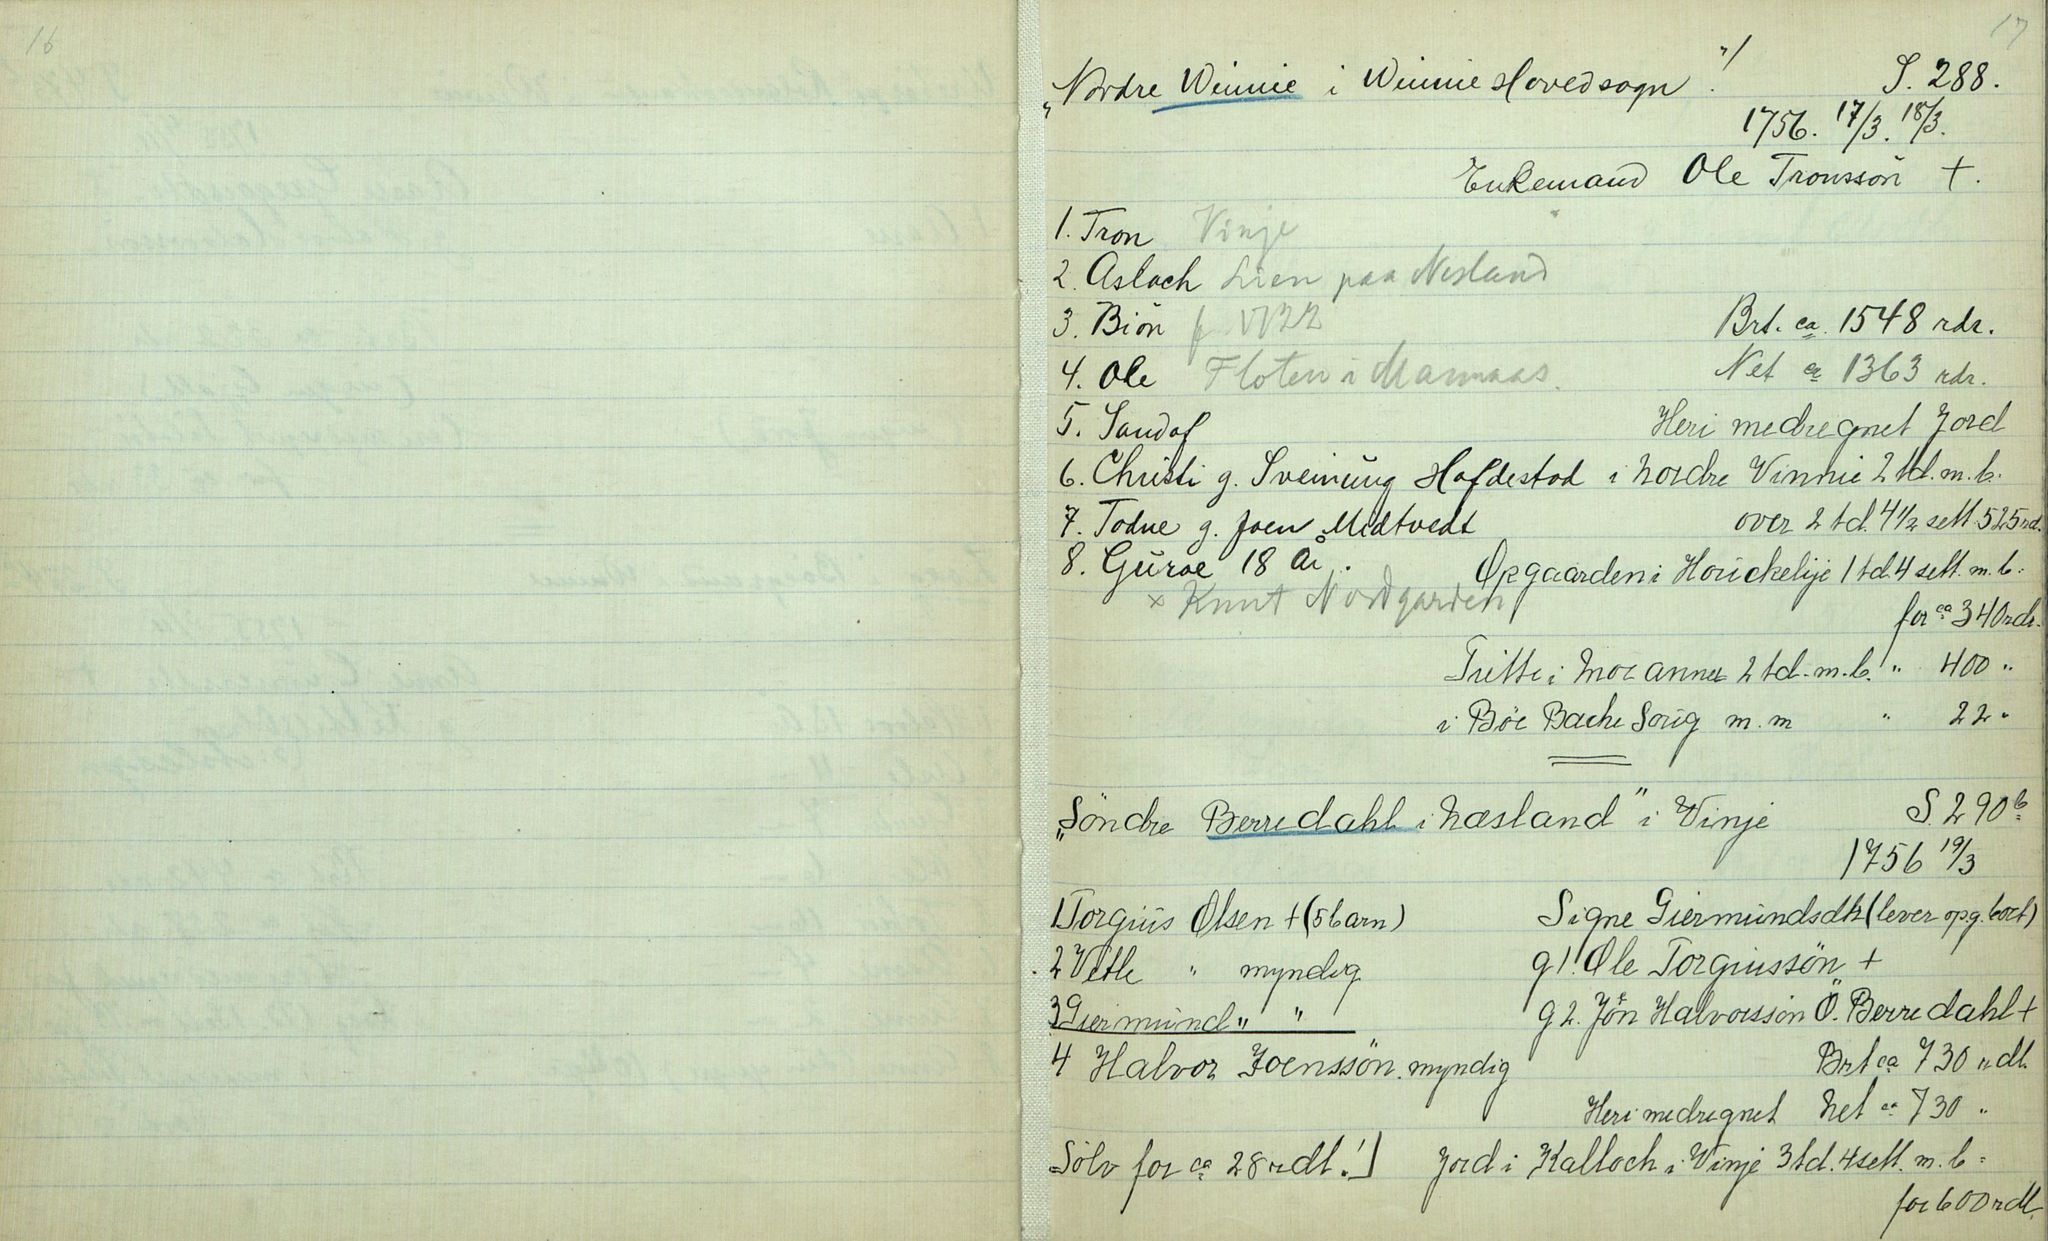 16
17
„Nordre Winnie i Winnie Hovedsogn". S. 288.
1756. 17/3. 18/3.
Enkemand Ole Tronssön +.
1. Tron Vinje
2. Aslach Lien paa Nesland
3. Biön Brt. ca. 1548 rdr.
4. Ole Floten i Net ca 1363 rdr.
5. Sandof Heri medregnet Jord
6. Christi g. Sveinung Hofdestad i Nordre Vinnie 2 td. m. b.
7. Todne g. Joen Midtvedt over 2 td. 4 1/2 sett. 525 rd.
8. Guroe 18 år. Opgaarden i Houckelije 1 td. 4 sett. m. b.
x Knut Nordgarden
for ca 340 rdr.
i 2 td. m. b. " 400 "
i Böe Bache Soug m. m " 22 "
„Söndre Berredahl i Næsland" i Vinje S. 290b
1756 19/3
1 Torgius Olsen + (5 barn) Signe Giermundsdtr (lever op.g. bort)
2 Vetle " myndig g 1. Ole Torgiussön +
3 Giermund " " g 2. Jön Halvorssön Ö. Berredahl +
4 Halvor Joenssön. myndig Brt ca 730 rdl.
Heri medregnet Net ca 730 "
Sölv for ca 28 rdl.!] Jord i Kalloch i Vinje 3 td. 4 sett. m. b.
for 600 rdl.